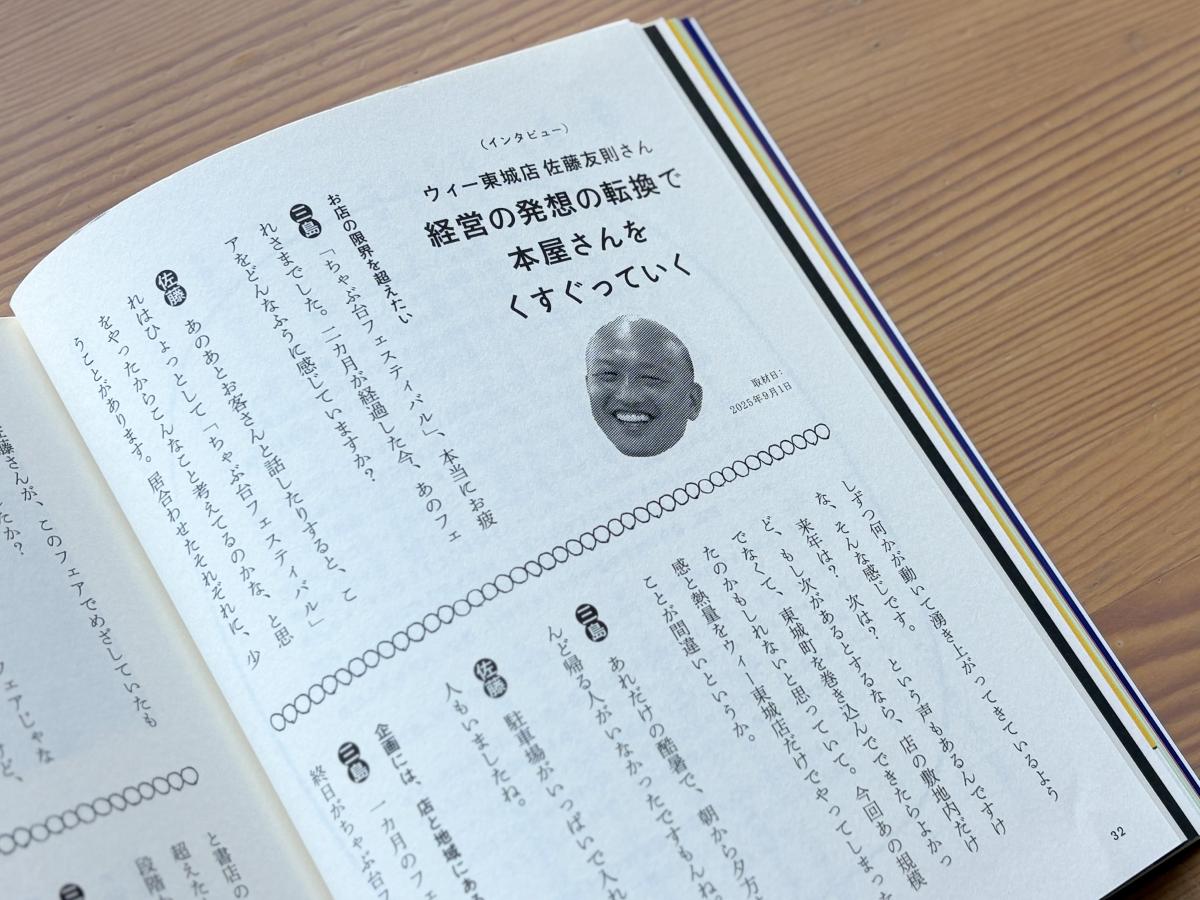 （インタビュー）
ウィー東城店 佐藤友則さん
経営の発想の転換で
本屋さんを
くすぐっていく
取材日：
2025年9月1日
お店の限界を超えたい
三島 「ちゃぶ台フェスティバル」、本当にお疲
れさまでした。二カ月が経過した今、あのフェ
アをどんなふうに感じていますか？
佐藤 あのあとお客さんと話したりすると、こ
れはひょっとして「ちゃぶ台フェスティバル」
をやったからこんなこと考えてるのかな、と思
うことがあります。居合わせたそれぞれに、少
しずつ何かが動いて湧き上がってきているよう
な、そんな感じです。
来年は？ 次は？ という声もあるんですけ
ど、もし次があるとするなら、店の敷地内だけ
でなくて、東城町を巻き込んでできたらよかっ
たのかもしれないと思っていて。今回あの規模
感と熱量をウィー東城店だけでやってしまった
ことが間違いというか。
三島 あれだけの酷暑で、朝から夕方
んど帰る人がいなかったですもんね。
佐藤 駐車場がいっぱいで入れ
人もいましたね。
企画には、店と地域にある
三島 一カ月のフェ
終日がちゃぶ台フ
32
佐藤さんが、このフェアでめざしていたも
したか？
フェアじゃな
けど、
と書店の
超えた
段階
三島